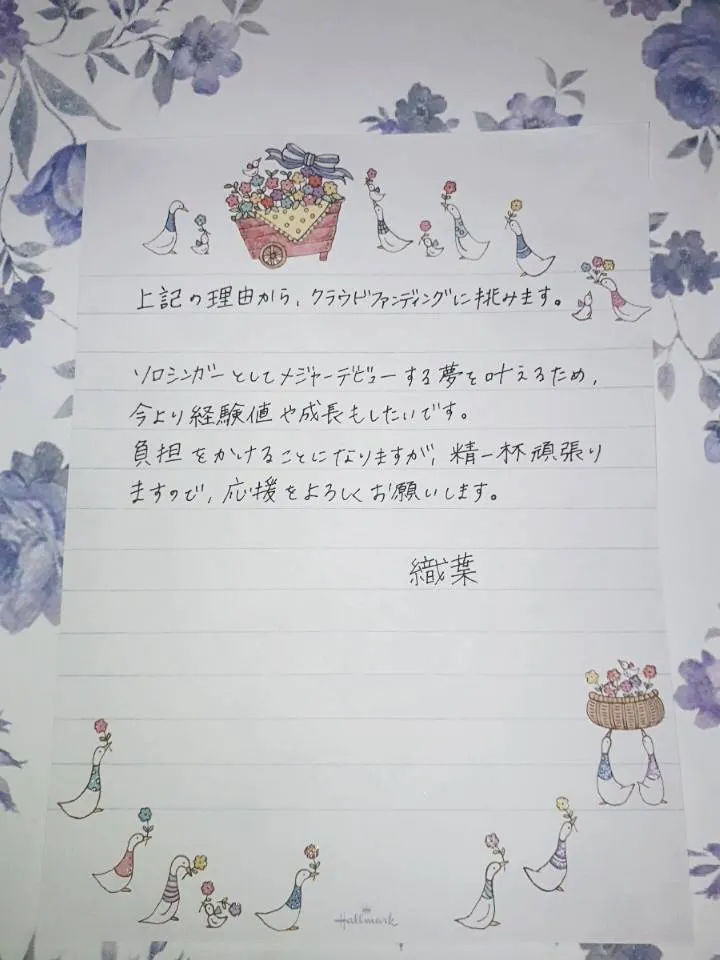 上記の理由から、クラウドファンディングに挑みます。
ソロシンガーとしてメジャーデビューする夢を叶えるため、
今より経験値や成長もしたいです。
負担をかけることになりますが、精一杯頑張り
ますので、応援をよろしくお願いします。
織葉
Hallmark